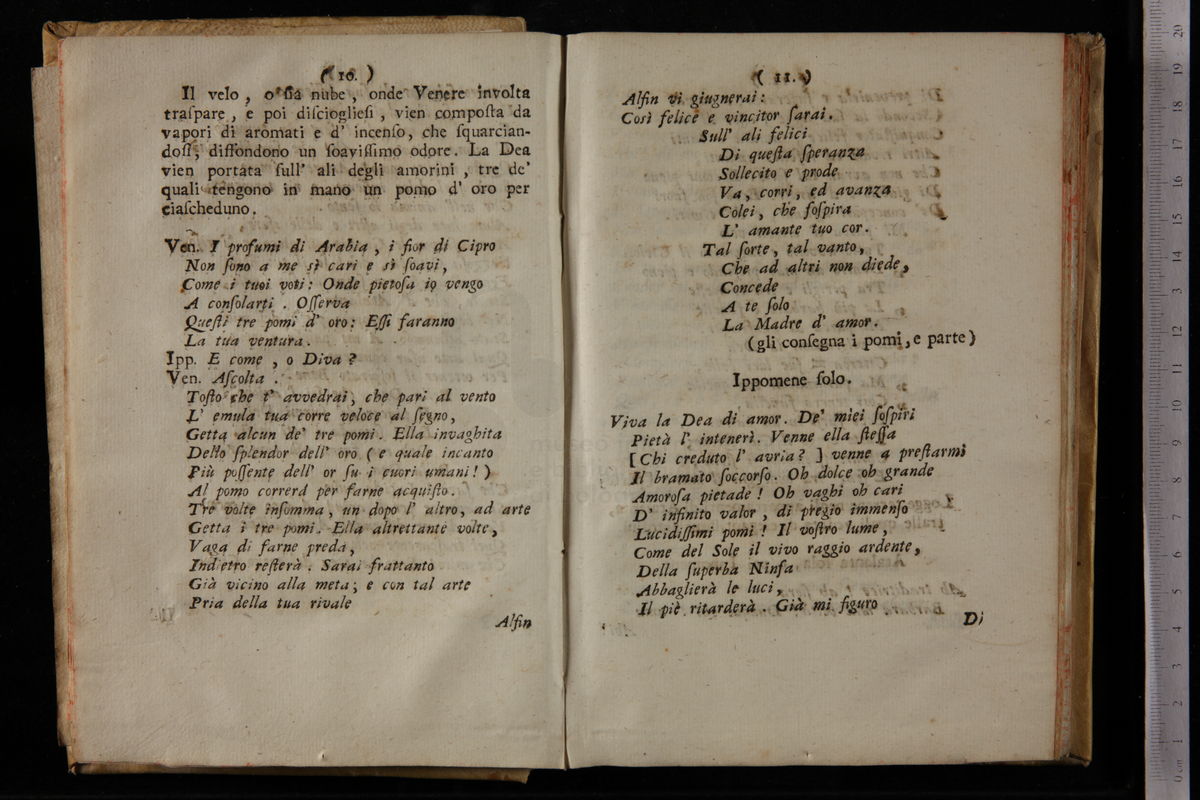 ( 10. )
Il velo, o ſia nube, onde Venere involta
traſpare, e poi diſcioglieſi, vien compoſta da
vapori di aromati e d' incenſo, che ſquarcian-
doſi, diffondono un ſoaviſſimo odore. La Dea
vien portata ſull' ali degli amorini, tre de'
quali tengono in mano un pomo d' oro per
ciaſcheduno.
Ven. I profumi di Arabia, i fior di Cipro
Non ſono a me sì cari e sì ſoavi,
Come i tuoi voti: Onde pietoſa io vengo
A conſolarti. Oſſerva
Queſti tre pomi d' oro: Eſſi faranno
La tua ventura.
Ipp. E come, o Diva?
Ven. Aſcolta.
Toſto che t' avvedrai, che pari al vento
L' emula tua corre veloce al ſegno,
Getta alcun de' tre pomi. Ella invaghita
Dello ſplendor dell' oro ( e quale incanto
Più poſſente dell' or ſu i cuori umani! )
Al pomo correrà per farne acquiſto.
Tre volte inſomma, un dopo l' altro, ad arte
Getta i tre pomi. Ella altrettante volte,
Vaga di farne preda,
Indietro reſterà. Sarai frattanto
Già vicino alla meta; e con tal arte
Pria della tua rivale
Alfin
( 11. )
Alfin vi giugnerai:
Così felice e vincitor ſarai.
Sull' ali felici
Di queſta ſperanza
Sollecito e prode
Va, corri, ed avanza
Colei, che ſoſpira
L' amante tuo cor.
Tal ſorte, tal vanto,
Che ad altri non diede,
Concede
A te ſolo
La Madre d' amor.
(gli conſegna i pomi, e parte)
Ippomene ſolo.
Viva la Dea di amor. De' miei ſoſpiri
Pietà l' intenerì. Venne ella ſteſſa
[ Chi creduto l' avria? ] venne a preſtarmi
Il bramato ſoccorſo. Oh dolce oh grande
Amoroſa pietade! Oh vaghi oh cari
D' infinito valor, di pregio immenſo
Lucidiſſimi pomi! Il voſtro lume,
Come del Sole il vivo raggio ardente,
Della ſuperba Ninfa
Abbaglierà le luci,
Il piè ritarderà. Già mi figuro
Di
0 cm 1 2 3 4 5 6 7 8 9 10 11 12 13 14 15 16 17 18 19 20